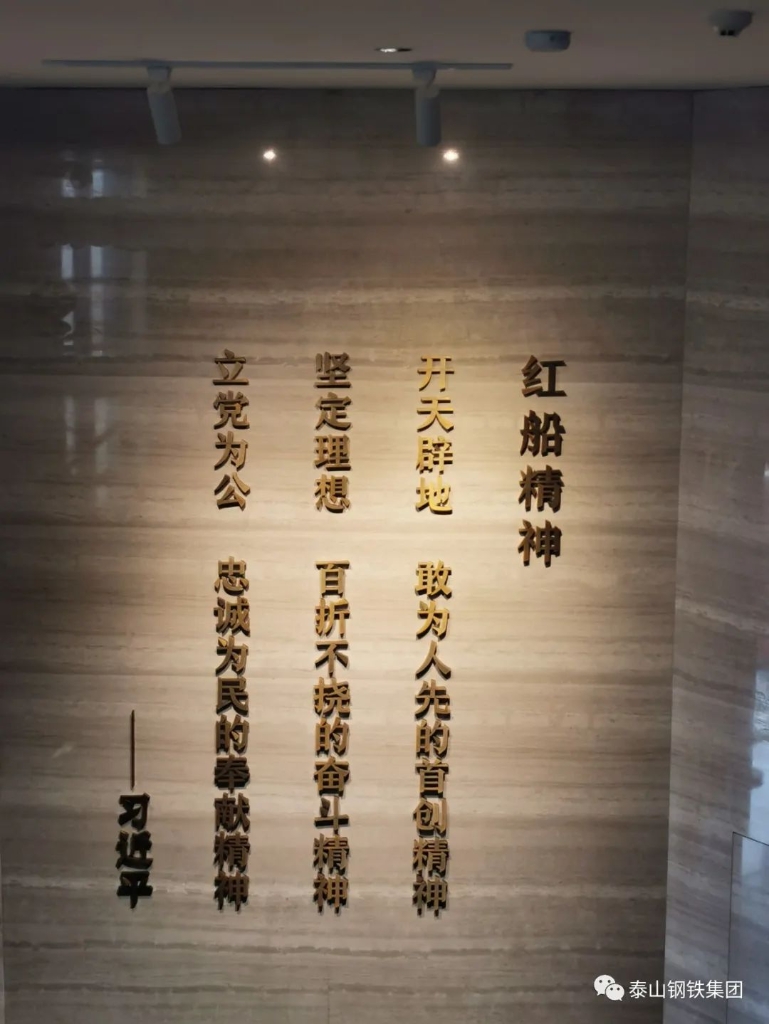 红船精神
开天辟地 敢为人先的首创精神
坚定理想 百折不挠的奋斗精神
立党为公 忠诚为民的奉献精神
——习近平
泰山钢铁集团